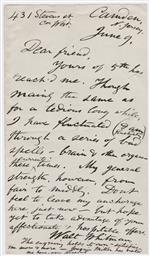 431 Stevens st
cor West.
Camden,
N Jersey,
June 9,
Dear friend,
Yours of 5th has
reach'd me. Though
mainly the same as
for a tedious long while,
I have fluctuated
through a series of bad
spells - brain & other organs
these times. My general
strength, however, from
fair to midly. Don't
feel to leave my anchorage
here just now, but hope
yet to take advantage of your
affectionate & hospitable offers.
Walt Whitman